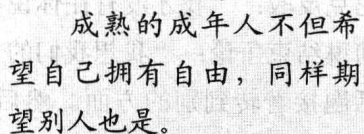 成熟的成年人不但希
望自己拥有自由，同样期
望别人也是。